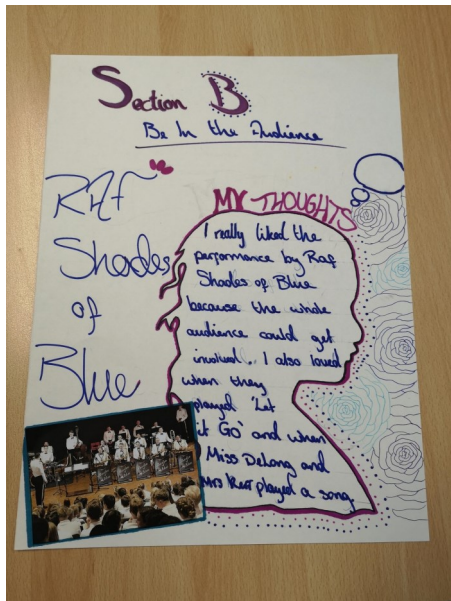 Section B
Be In the Audience
RAF
Shades
of
Blue
MY THOUGHTS
I really liked the
performance by Raf
Shades of Blue
because the whole
audience could get
involved. I also loved
when they
played 'Let
it Go' and when
Miss DeLong and
Mrs Kerr played a song.